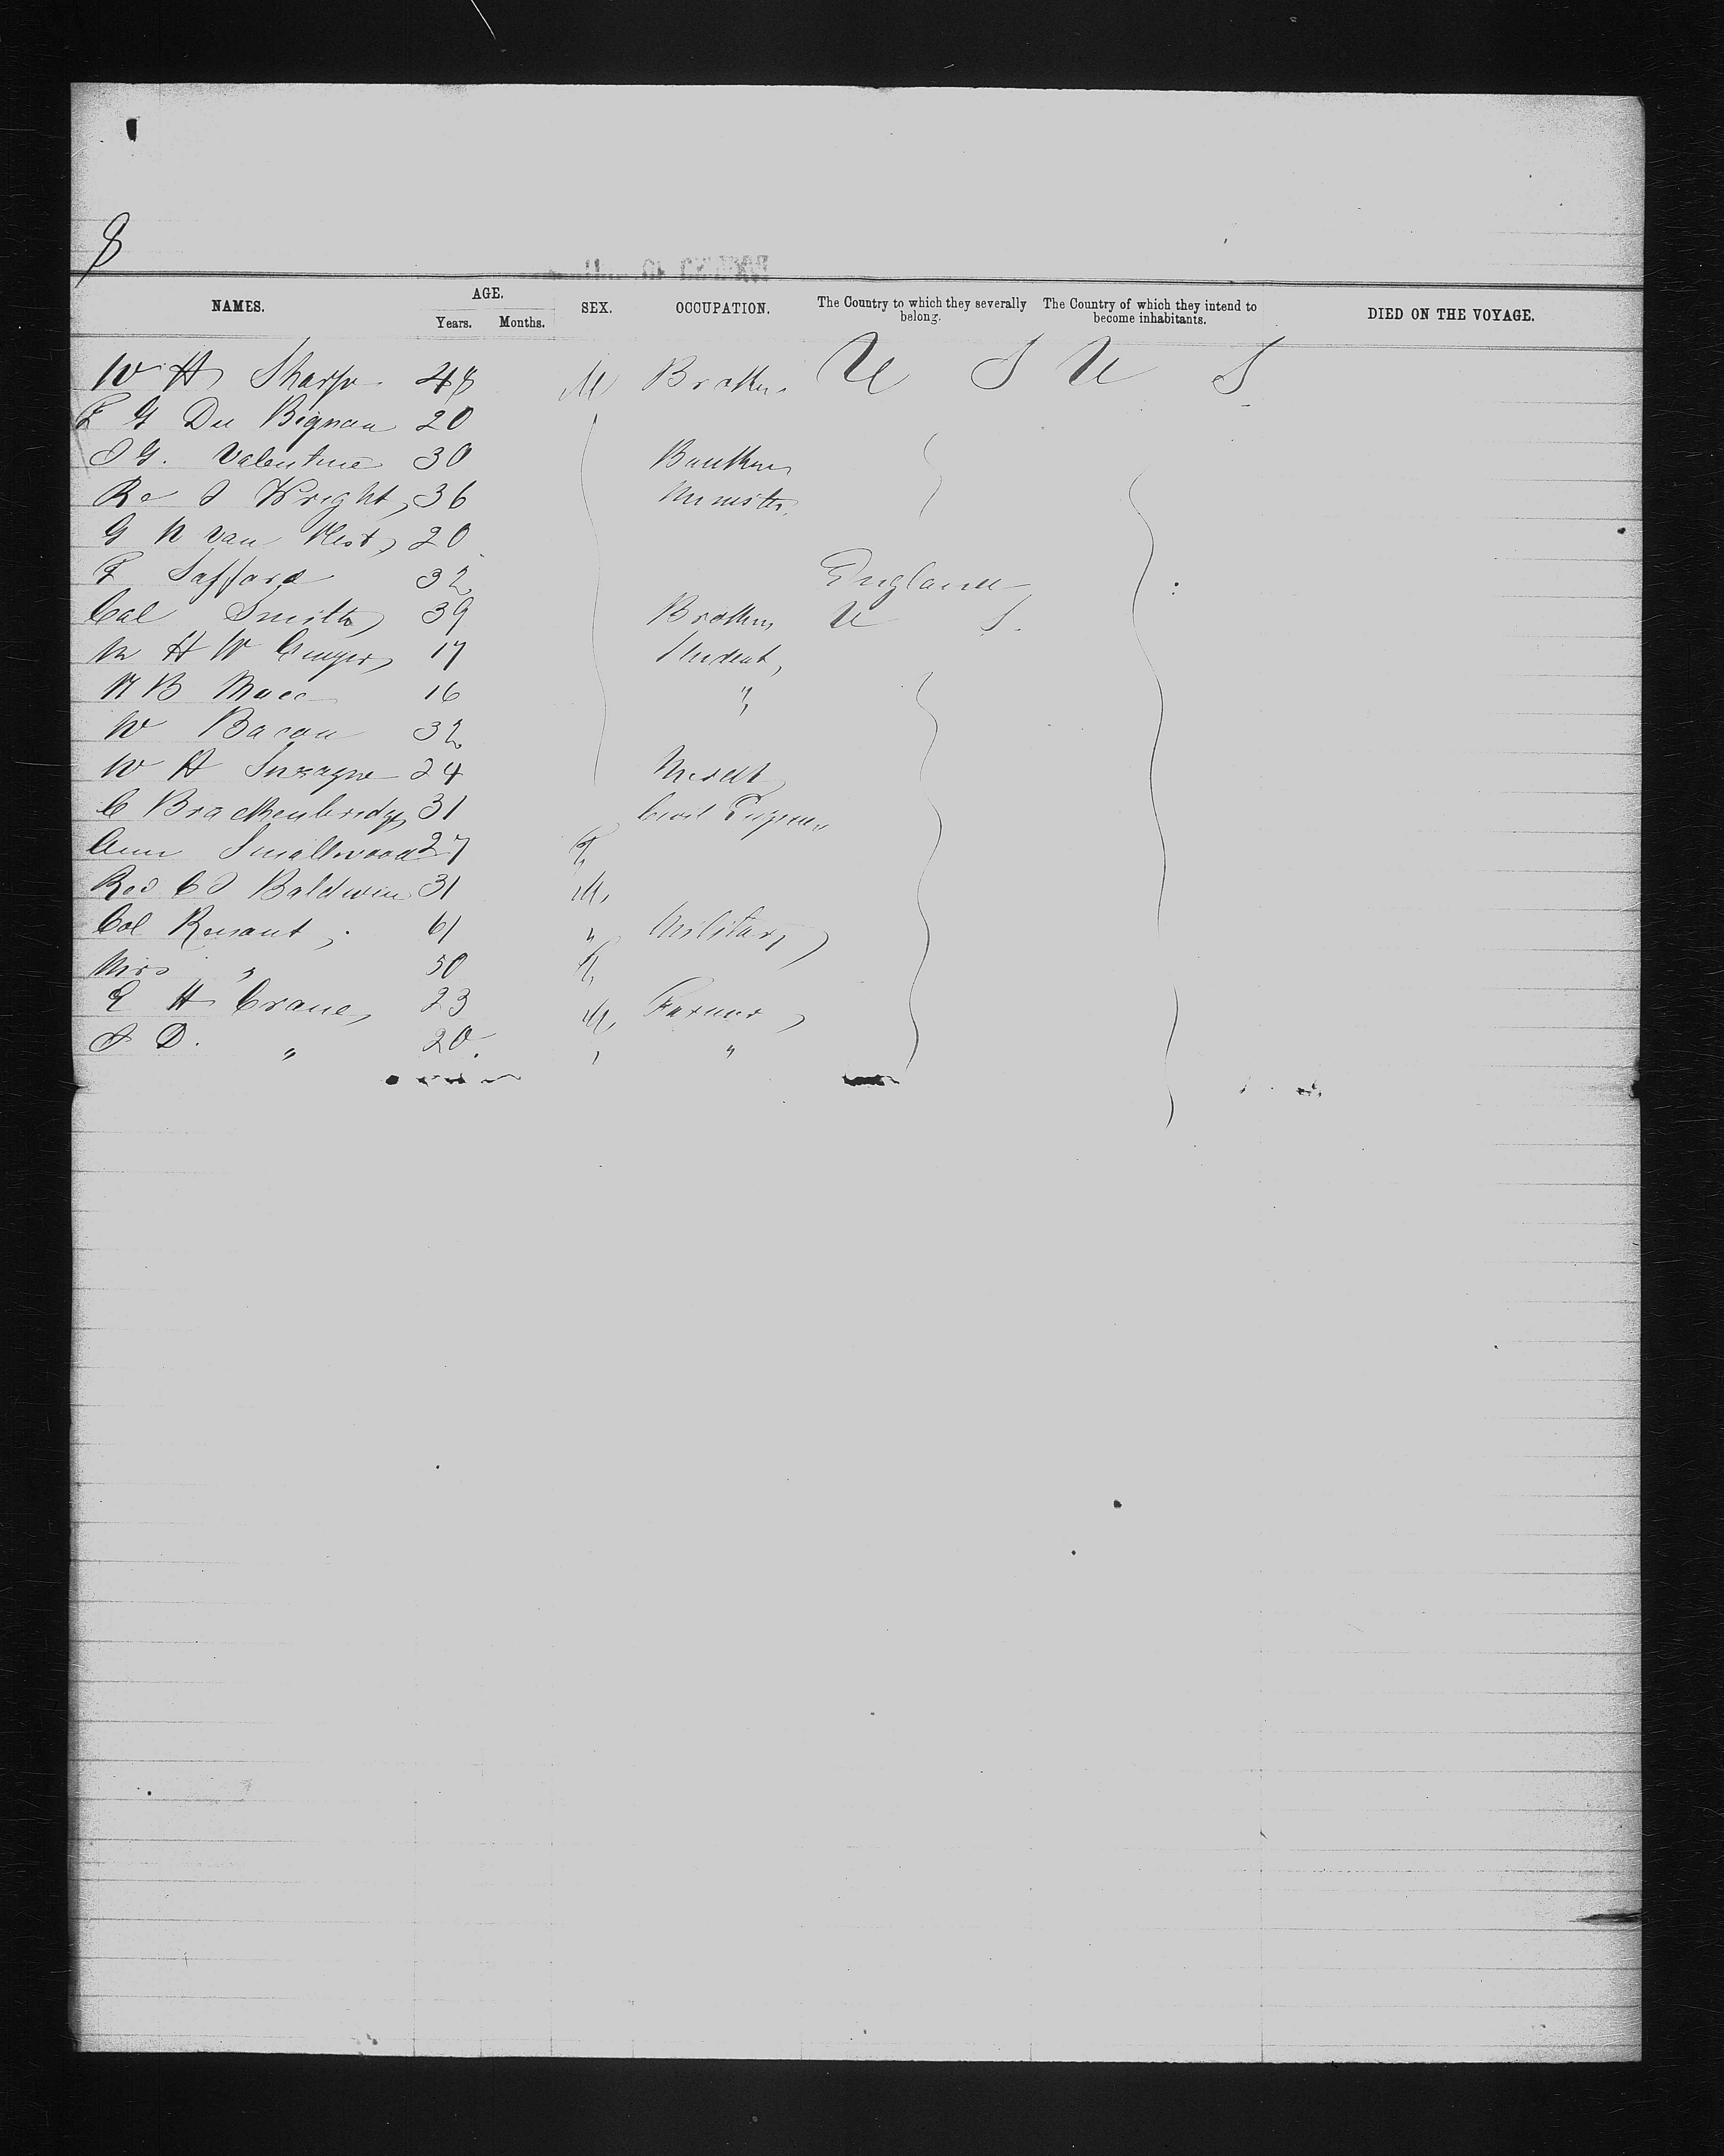 8
NAMES. AGE. SEX. OCCUPATION. The Country to which they severally belong. The Country of which they intend to become inhabitants. DIED ON THE VOYAGE.
Years. Months.
W H Sharp 48 M Broker U S U S
F G Du Bignon 20
J G. Valentine 30 Banker
Re J Wright, 36 Minister,
G N van Nest, 20
F Safford 32 England
Col Smith 39 Broker, U S.
17 Student,
16 "
W Bacon 32
W H 24 Mercht
C Brackenbridge 31 Civil Engineer
Ann Smallwood 27 F,
Rev C J Baldwin 31 M,
Col 61 " Military,
Mrs " 50 F,
E H Crane, 23 M, Farmer,
J D. " 20. " "